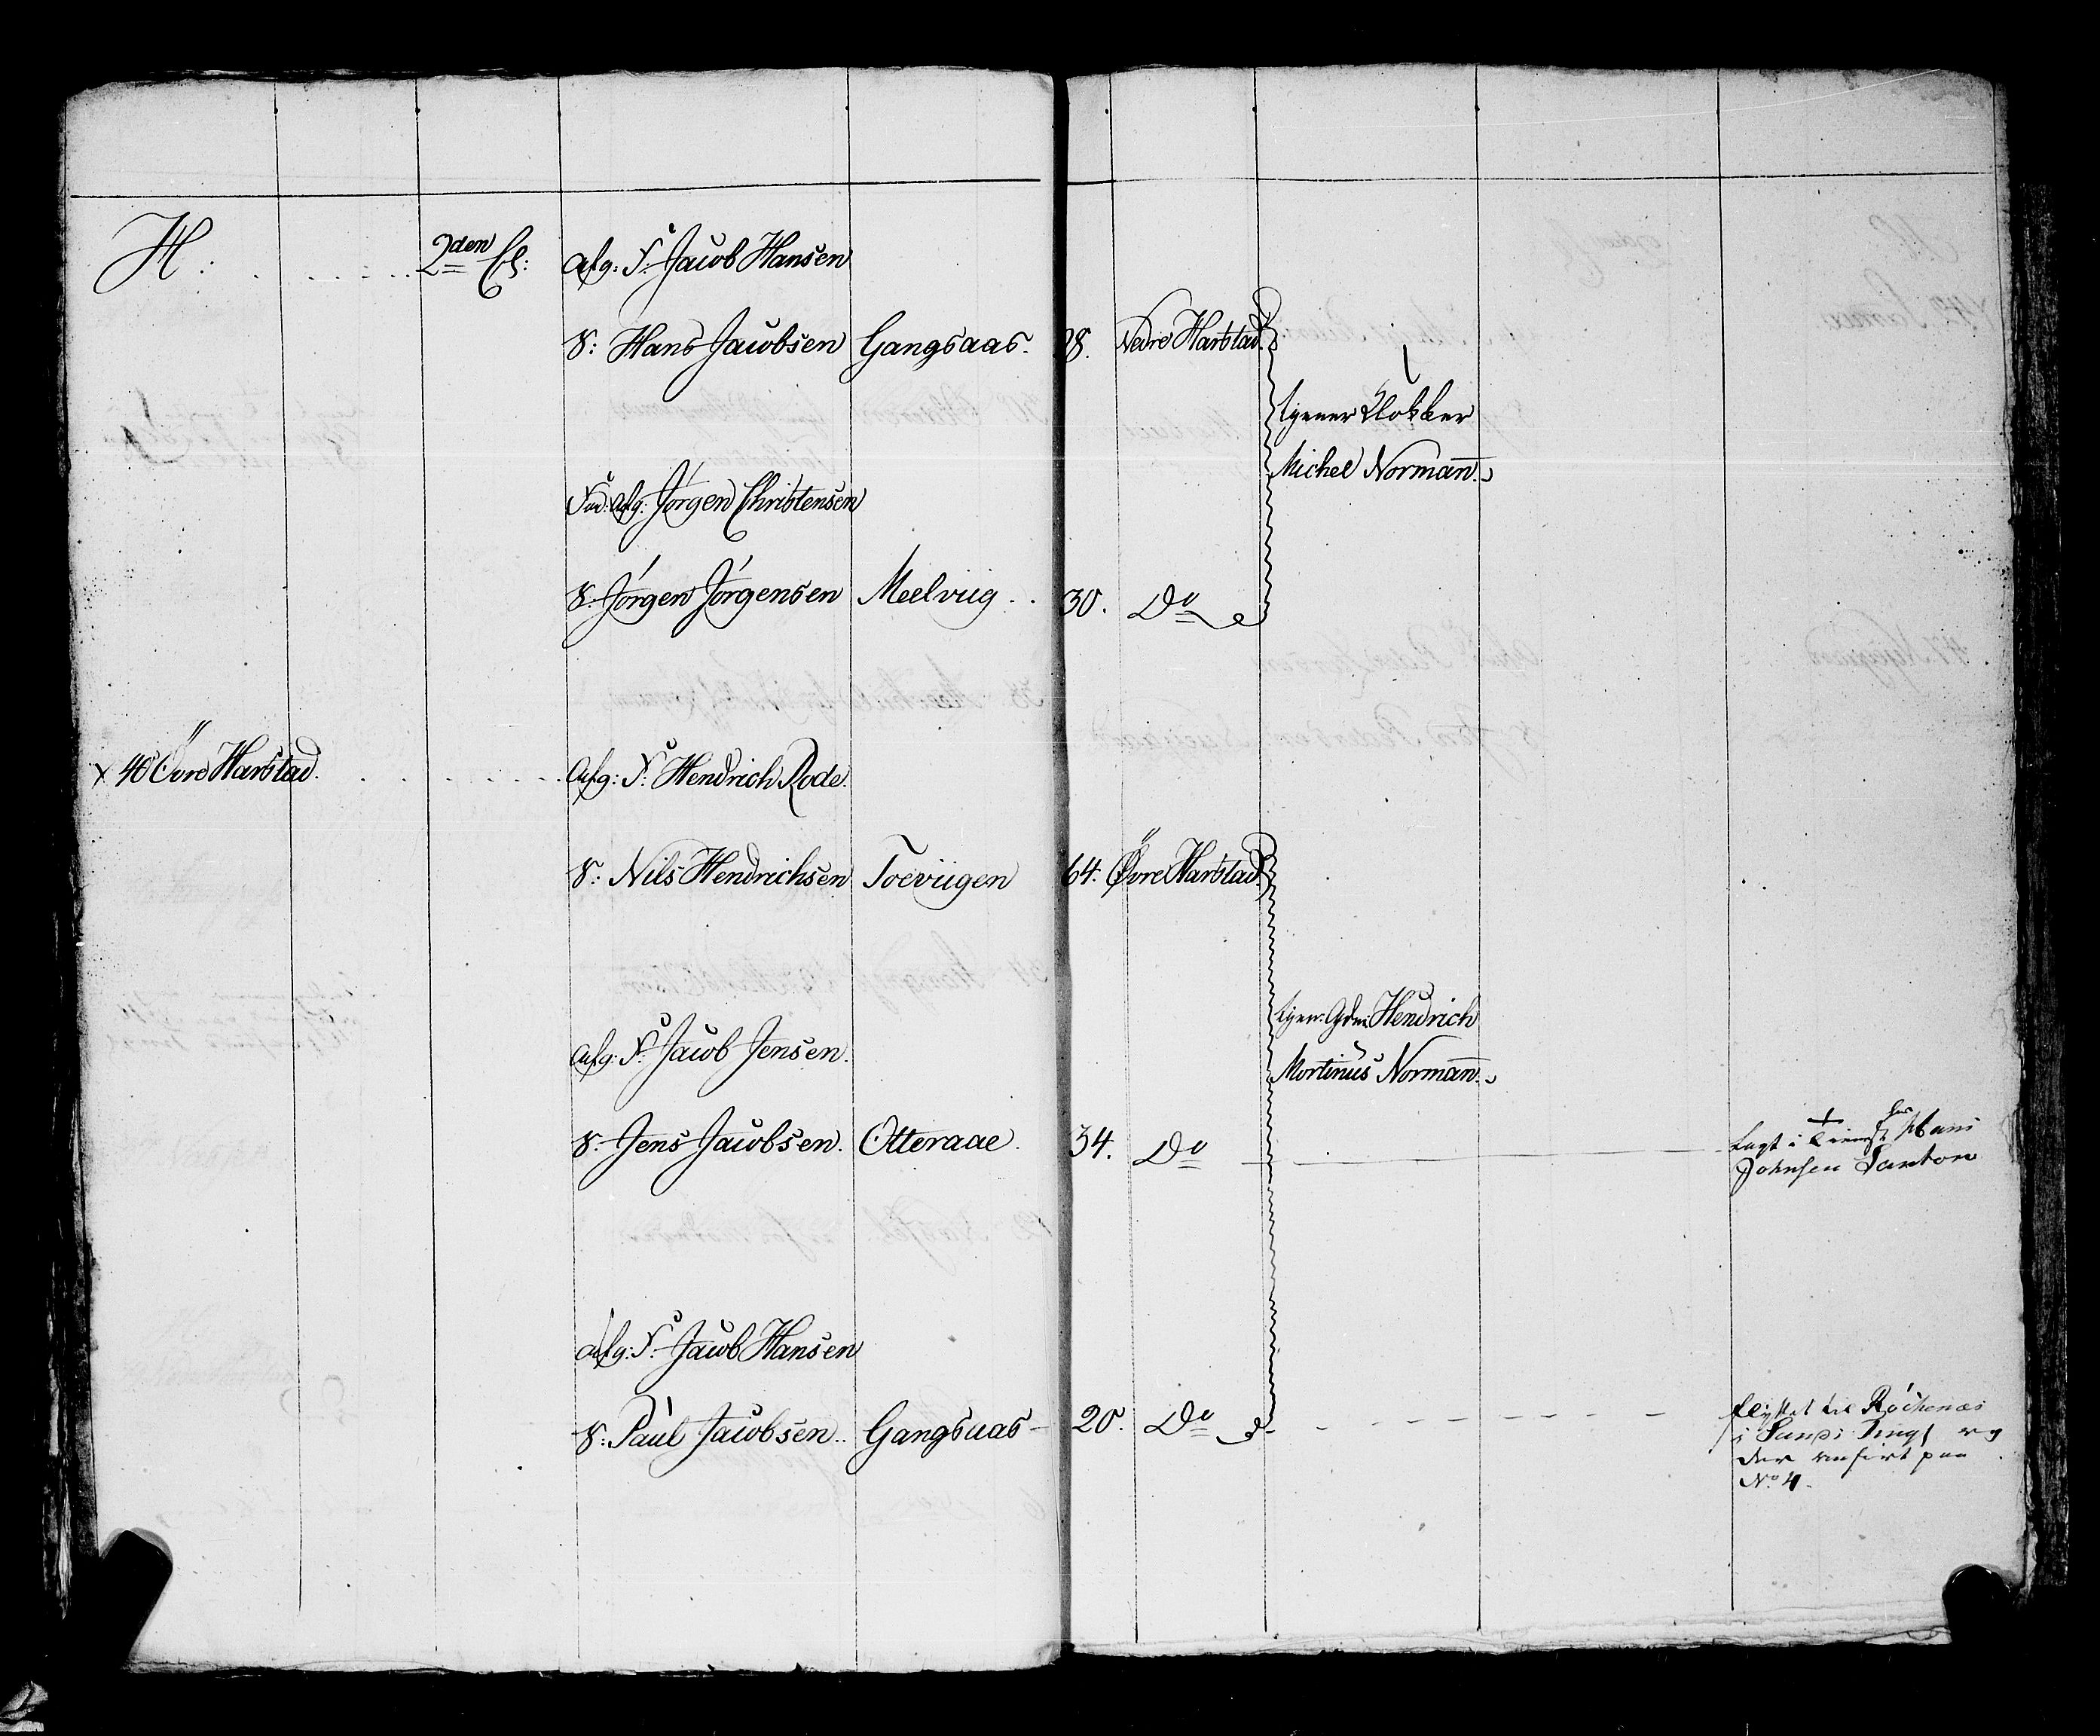 H: 2den Cl: afg: F: Jacob Hansen
S: Hans Jacobsen Gangsaas. 28. Nedre Harstad
tjener Klokker
Michel Normañ
Fad: afg: Jörgen Christensen
S: Jörgen Jörgensen Meelviig . . 30. Do
x 40 Övre Harstad. afg: F: Hendrich Rode.
S: Nils Hendrichsen Toeviigen 64. Övre Harstad
tjen: Gdm: Hendrich
Mortinus Normañ
afg: F: Jacob Jensen.
S: Jens Jacobsen. Otteraae. 34. Do
+ hos
Lagt i Tienst Hans
Johnsen Santor
afg: F: Jacob Hansen
S: Paul Jacobsen.. Gangsaas 20. Do
flyttet til Röckenæs
i Sands Tingl og
der anfört paa
No 4.